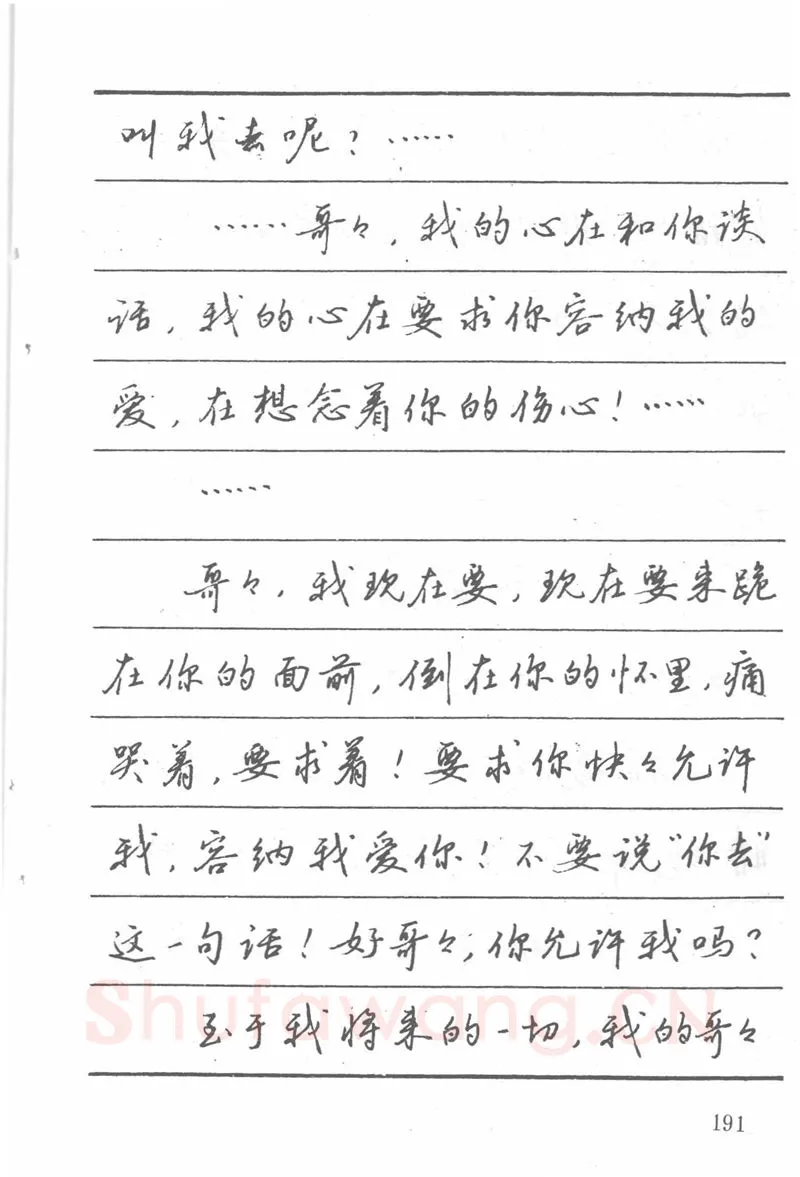 叫我去呢？……
……哥々，我的心在和你谈
话，我的心在要求你容纳我的
爱，在想念着你的伤心！……
……
哥々，我现在要，现在要来跪
在你的面前，倒在你的怀里，痛
哭着，要求着！要求你快々允许
我，容纳我爱你！不要说“你去”
这一句话！好哥々，你允许我吗？
至于我将来的一切，我的哥々
Shufawang.CN
191